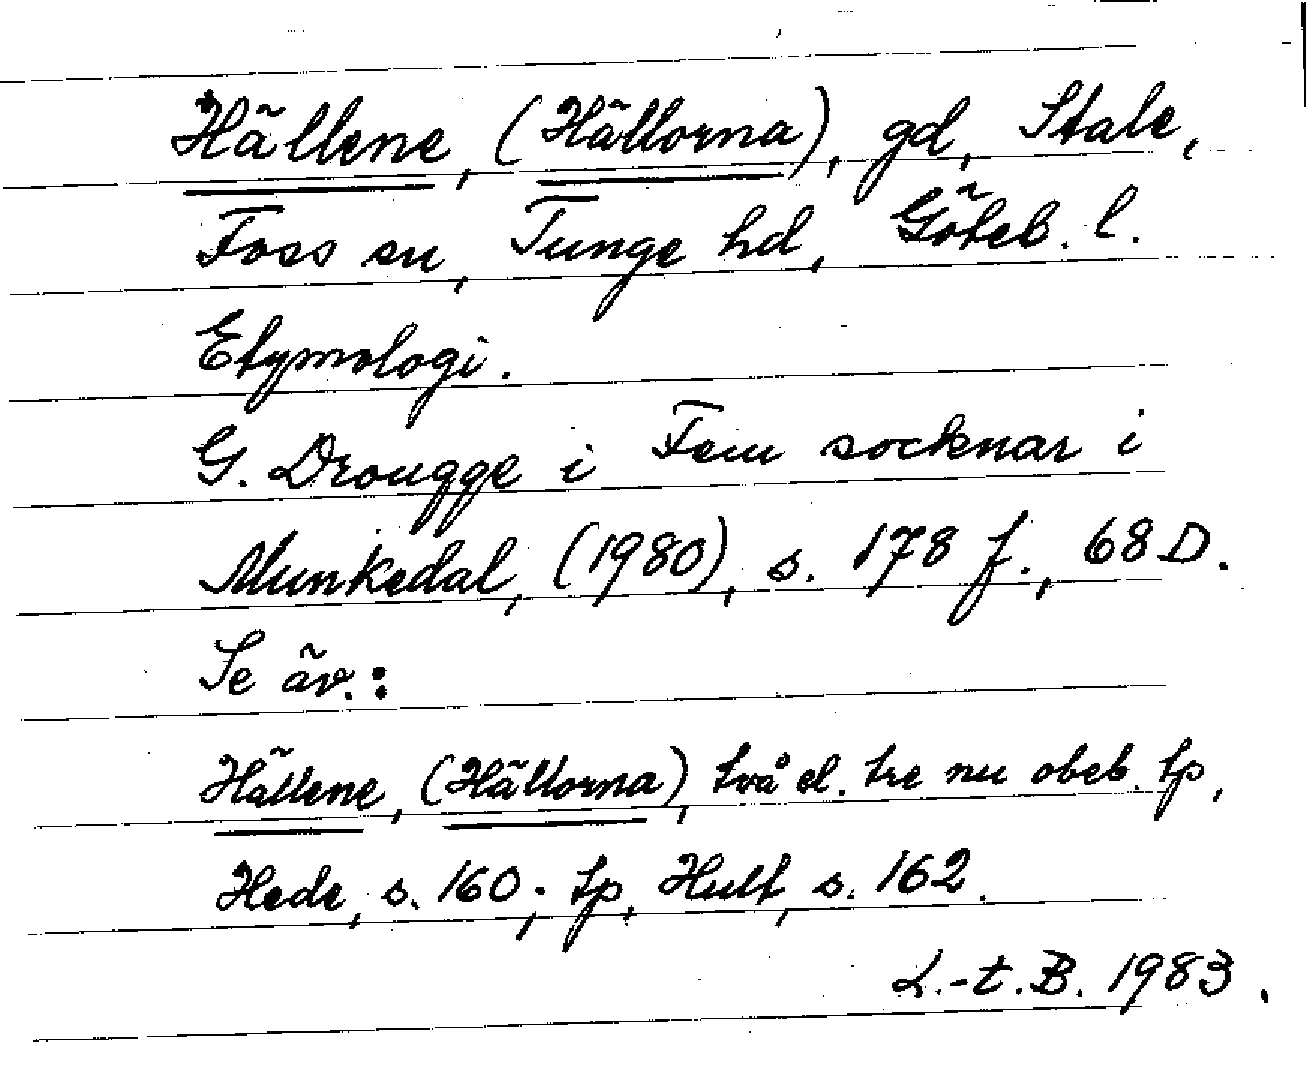 Hällene, (Hällorna), gd, Stale,
Foss sn, Tunge hd, Göteb. l.
Etymologi.
G. Drougge i Fem socknar i
Munkedal, (1980), s. 178 f., 68 D.
Se äv.:
Hällene, (Hällorna), två el. tre nu obeb. tp,
Hede, s. 160; tp, Hult, s. 162.
L.-t. B. 1983.